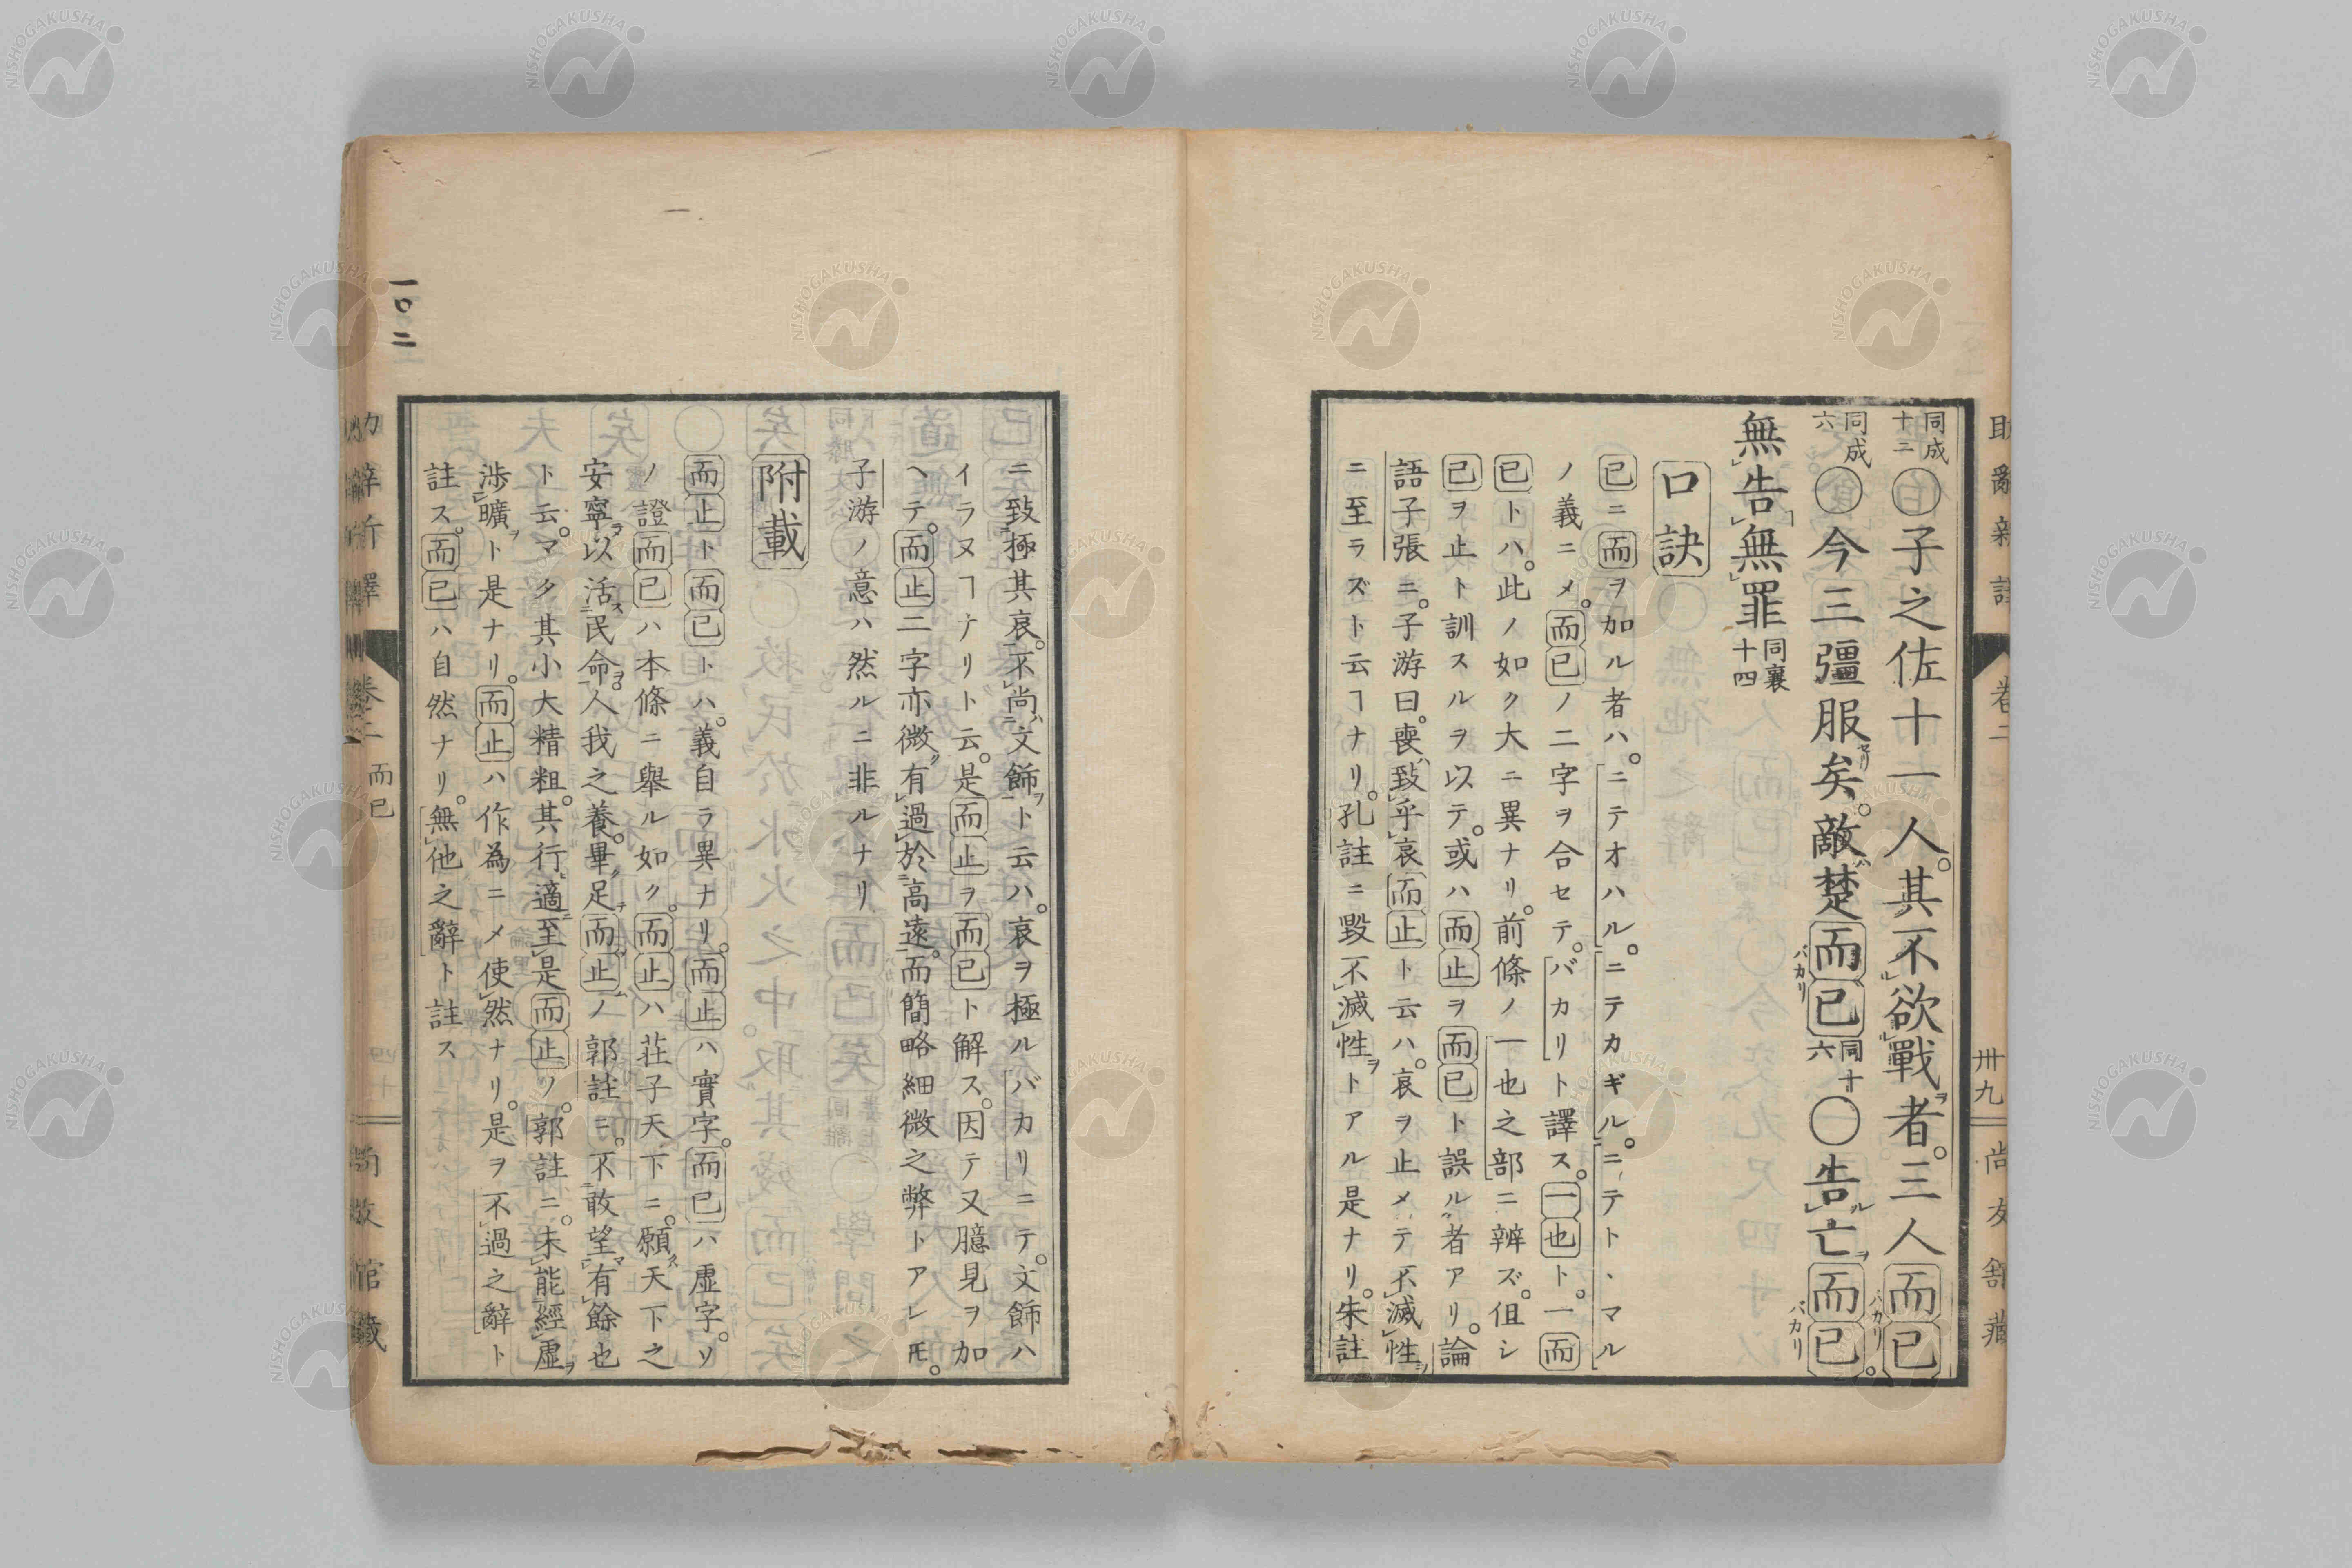 同成十二〇子之佐十一人。其不欲戰者。三人而已。
同成六〇今三彊服矣。敵楚而已同十六〇告亡而已
無告無罪同襄十四
口訣
已ニ而ヲ加ル者ハ。ニテオハル。ニテカギル。ニテトヽマル
ノ義ニメ。而已ノ二字ヲ合セテ。バカリト譯ス。一也ト。一而
已トハ。此ノ如ク大ニ異ナリ。前條ノ一也之部ニ辨ズ。伹シ
已ヲ止ト訓スルヲ以テ。或ハ而止ヲ而已ト誤ル者アリ。論
語子張ニ。子游曰。喪致乎哀而止ト云ハ。哀ヲ止メテ不滅性
ニ至ラズト云ヿナリ。孔註ニ毀不滅性ヲトアル是ナリ。朱註
ニ致極其哀。不尚文飾ヲト云ハ。哀ヲ極ルバカリニテ。文飾ハ
イラヌヿナリト云。是而止ヲ而已ト解ス。因テ又臆見ヲ加
ヘテ。而止二字亦微有過於高遠。而簡略細微之弊トアレ𪜈。
子游ノ意ハ然ルニ非ルナリ
附載
而止ト而已トハ。義自ラ異ナリ。而止ハ實字。而已ハ虛字。ソ
ノ證而已ハ本條ニ舉ル如ク。而止ハ荘子天下ニ。願天下之
安寧以活民命。人我之養。畢足而止ノ郭註ニ。不敢望有餘也
ト云。マタ其小大精粗。其行適至是而止ノ。郭註ニ。未能經虛
渉曠ヲト是ナリ。而止ハ作為ニメ使然ナリ。是ヲ不過之辭ト
註ス。而已ハ自然ナリ。無他之辭ト註ス
卷二
而已
卅九
一〇二